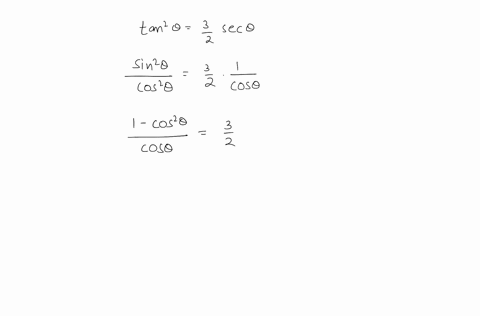 tan²θ = 3/2 secθ
sin²θ/cos²θ = 3/2 · 1/cosθ
1 - cos²θ/cosθ = 3/2